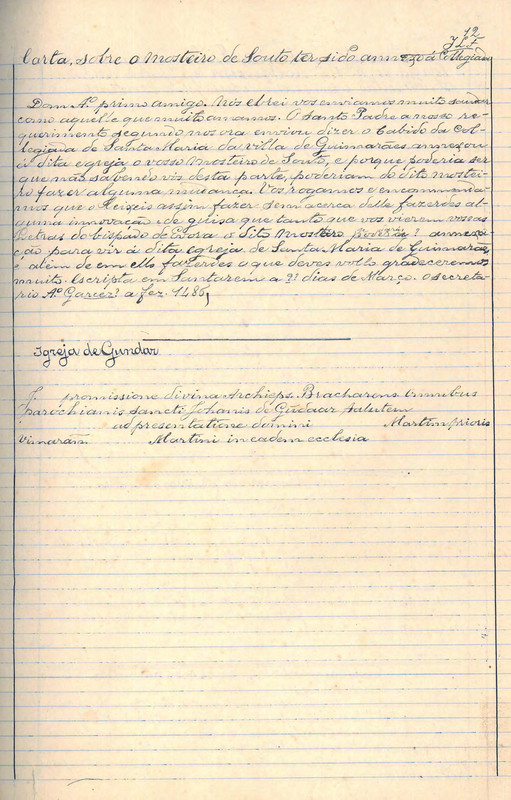 12
J. L. F.
Carta, sobre o Mosteiro de Souto ter sido annexo á Collegiada
Dom Aº. primo amigo. Nós elrei vos enviamos muito saudar
como aquelle que muito amamos. O santo Padre a nosso re-
querimento segundo nos ora enviou dizer o Cabido da Col-
legiada de Santa Maria da villa de Guimarães annexou
á dita egreja o vosso Mosteiro de Souto, e porque poderia ser
que não sabendo vós desta parte, poderiam do dito mostei-
ro fazer alguma mudança. Vos rogamos e encommenda-
mos que o leixeis assim fazer sem acerca delle fazerdes al-
guma innovação de guisa que tanto que vos vierem vossas
Letras do bispado de Evora o dito Mosteiro annexa-
ção para vir á dita egreja de Santa Maria de Guimarães
e além de em ello fazerdes o que deves volto gradeceremos
muito. Escripta em Santarem a 2? dias de Março. O secreta-
rio Aº. Garcez? a fez. 1486,
Igreja de Gundar
J. promissione divina Archieps. Bracharens. omnibus
parochianis sancti Johanis de Gudaar salutem
ad presentatione domini Martim prioris
Vimaram Martini in eadem ecclesia